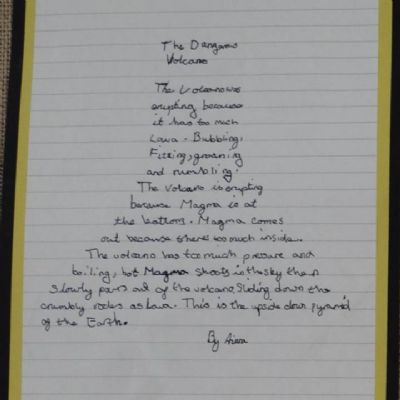 The Dangarous
Volcano
The Volcano was
erupting because
it has too much
Lava - Bubbling,
Fizzing, groaning
and rumbling.
The Volcano is erupting
because Magma is at
the bottom. Magma comes
out because theres too much inside.
The volcano has too much pressure and
boiling, hot Magma shoots in the sky then
slowly pours out of the volcano, Sliding down the
crumbly sides as Lava. This is the upside down pyramid
of the Earth.
By